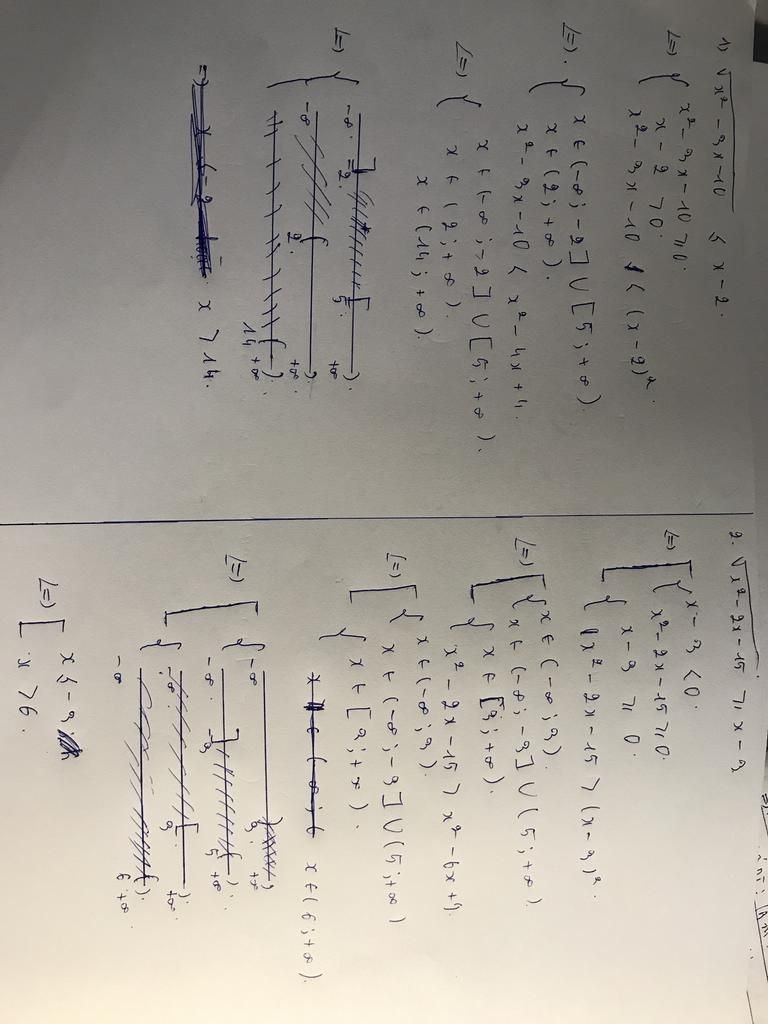 1) √x² - 3x - 10 ≤ x - 2.
⇔ { x² - 3x - 10 ≥ 0.
x - 2 > 0.
x² - 3x - 10 < (x - 2)².
⇔ { x ∈ (-∞; -2] ∪ [5; +∞).
x ∈ (2; +∞).
x² - 3x - 10 < x² - 4x + 4.
⇔ { x ∈ (-∞; -2] ∪ [5; +∞).
x ∈ (2; +∞).
x ∈ (14; +∞).
⇔ { -∞ ] -2 [ 5 ) +∞
-∞ ( 2 ) +∞
( 14 ) +∞
x > 14.
2. √x² - 2x - 15 ≥ x - 3
⇔ [ { x - 3 < 0.
x² - 2x - 15 ≥ 0.
{ x - 3 ≥ 0.
x² - 2x - 15 > (x - 3)².
⇔ [ { x ∈ (-∞; 3)
x ∈ (-∞; -3] ∪ (5; +∞).
{ x ∈ [3; +∞).
x² - 2x - 15 > x² - 6x + 9.
⇔ [ { x ∈ (-∞; 3).
x ∈ (-∞; -3] ∪ (5; +∞)
{ x ∈ [3; +∞).
x ∈ (6; +∞).
⇔ [ { -∞ ) 3 +∞
-∞ ] -3 ( 5 ) +∞
{ -∞ [ 3 ) +∞
-∞ ( 6 ) +∞
⇔ [ x ≤ -3
x > 6.